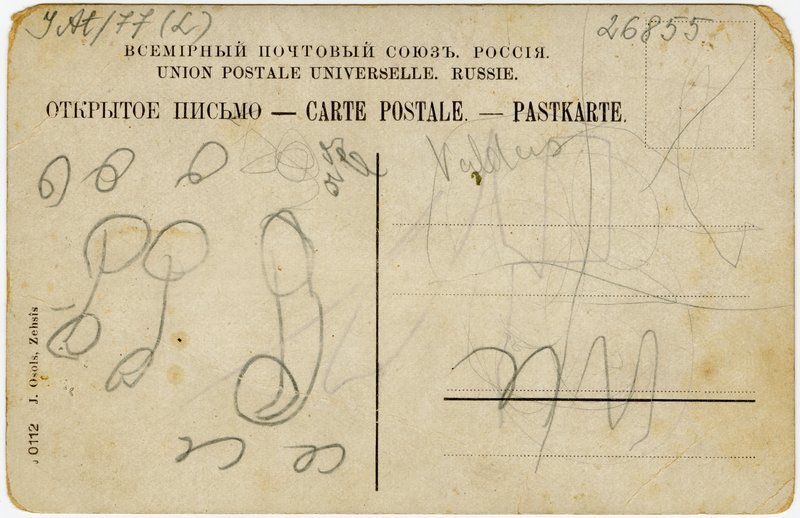 JAt/77 (L)
26855
ВСЕМІРНЫЙ ПОЧТОВЫЙ СОЮЗЪ. РОССІЯ.
UNION POSTALE UNIVERSELLE. RUSSIE.
ОТКРЫТОЕ ПИСЬМО — CARTE POSTALE. — PASTKARTE.
J. Osols, Zehsis
0112